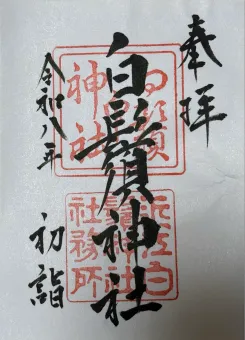 奉拝
白鬚神社
令和八年
初詣
白鬚神社
近江白鬚神社社務所